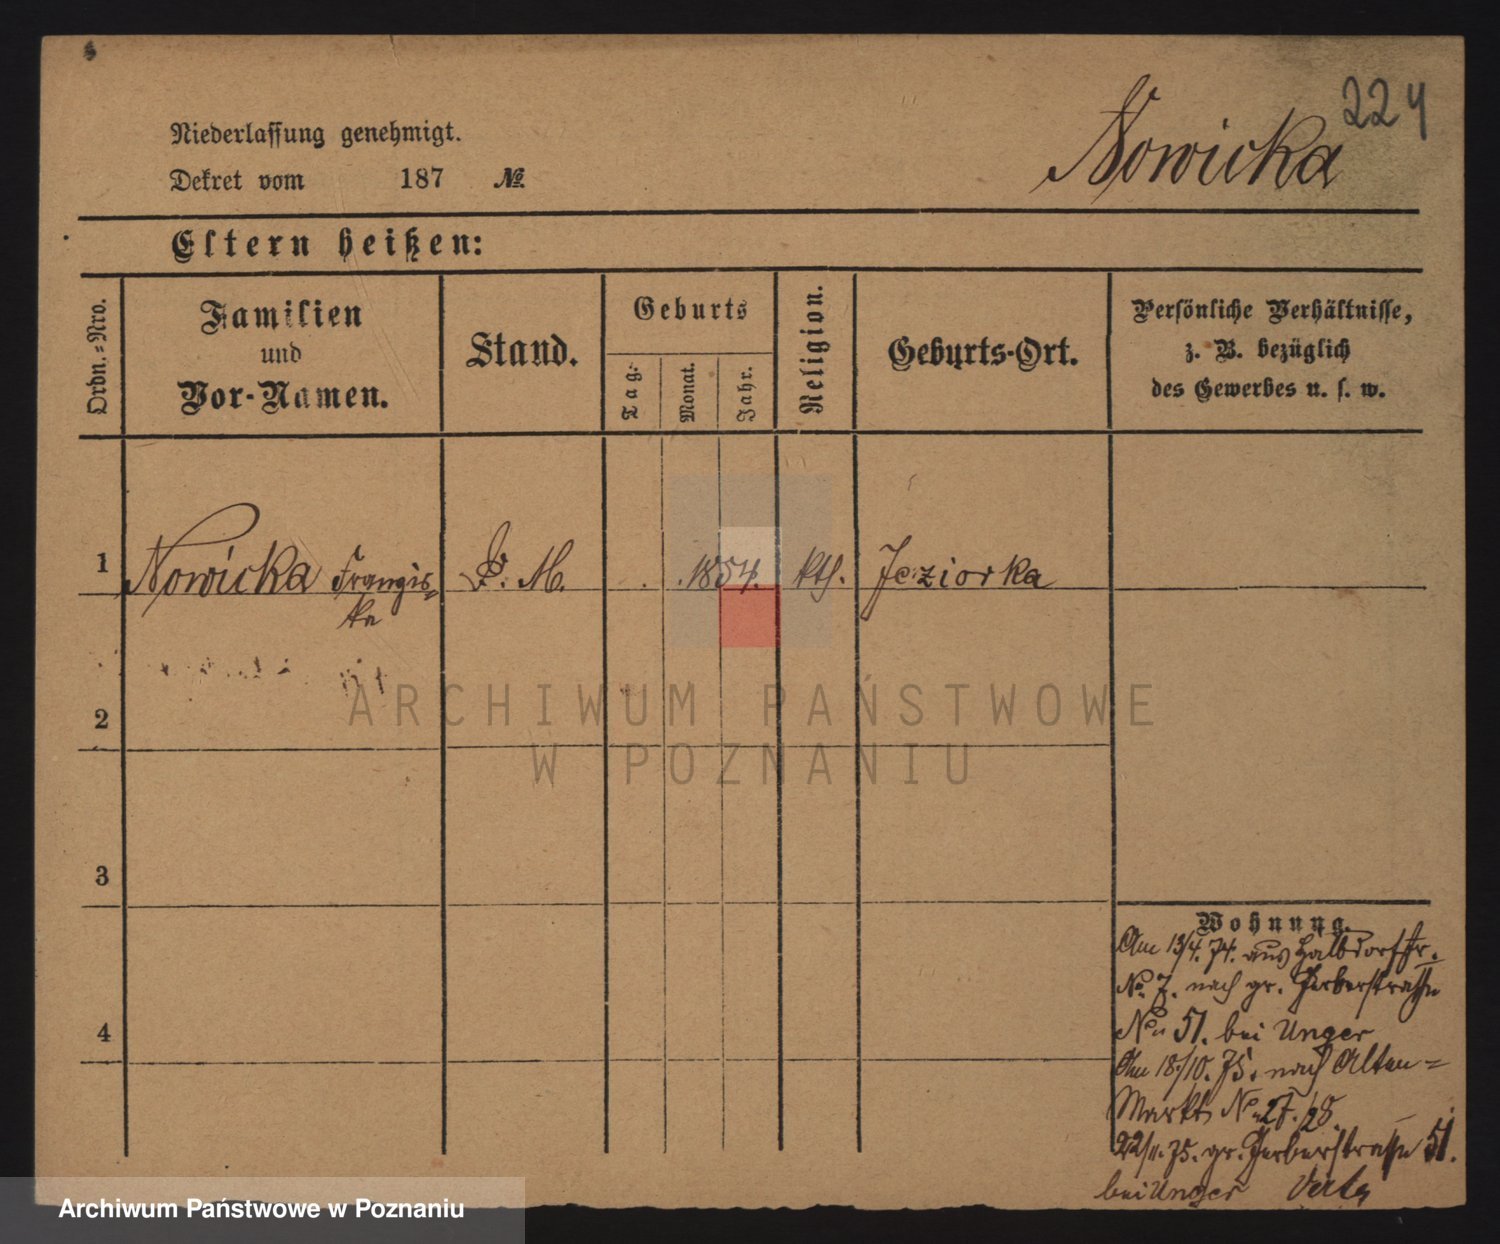 224
Nowicka
Niederlassung genehmigt.
Dekret vom 187 №
Eltern heißen:
Ordn.-Nro.
Familien
und
Vor-Namen.
Stand.
Geburts
Tag.
Monat.
Jahr.
Religion.
Geburts-Ort.
Persönliche Verhältnisse,
z. B. bezüglich
des Gewerbes u. s. w.
1 Nowicka Franzis- D. M. 1854. kth. Jeziorka
ka
2
3
4
Wohnung.
Am 13/4. 74. aus Halbdorfstr.
No. 7. nach gr. Gerberstraße
No 51. bei Unger
Am 18/10. 75. nach Alten-
Markt No 27./28.
22/11. 75. gr. Gerberstraße 51.
bei Unger
ARCHIWUM PAŃSTWOWE
W POZNANIU
Archiwum Państwowe w Poznaniu